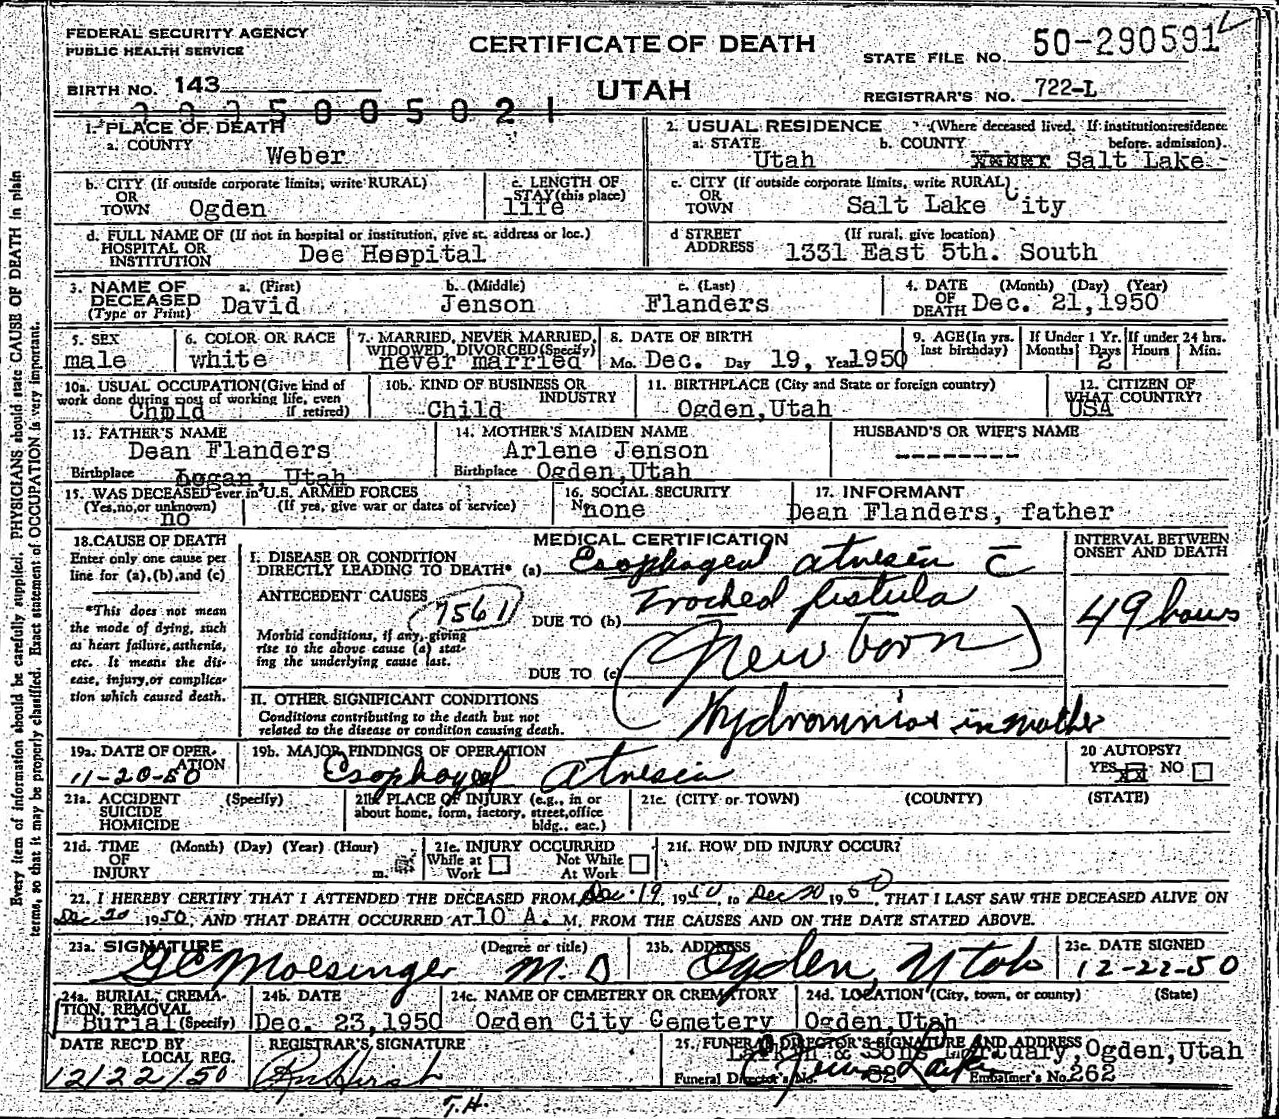 FEDERAL SECURITY AGENCY
PUBLIC HEALTH SERVICE
CERTIFICATE OF DEATH
STATE FILE NO. 50-290591
BIRTH NO. 143
UTAH
REGISTRAR'S NO. 722-L
5005021
1. PLACE OF DEATH
a. COUNTY Weber
2. USUAL RESIDENCE (Where deceased lived. If institution: residence before admission).
a. STATE Utah b. COUNTY Salt Lake
b. CITY (If outside corporate limits, write RURAL) OR TOWN Ogden
c. LENGTH OF STAY (this place) life
c. CITY (If outside corporate limits, write RURAL) OR TOWN Salt Lake City
d. FULL NAME OF (If not in hospital or institution, give st. address or loc.) HOSPITAL OR INSTITUTION Dee Hospital
d STREET ADDRESS (If rural, give location) 1331 East 5th. South
3. NAME OF DECEASED (Type or Print) a. (First) David b. (Middle) Jenson c. (Last) Flanders
4. DATE OF DEATH (Month) (Day) (Year) Dec. 21, 1950
5. SEX male
6. COLOR OR RACE white
7. MARRIED, NEVER MARRIED, WIDOWED, DIVORCED (Specify) never married
8. DATE OF BIRTH Mo. Dec. Day 19, Year 1950
9. AGE (In yrs. last birthday) If Under 1 Yr. Months Days 2 If under 24 hrs. Hours Min.
10a. USUAL OCCUPATION (Give kind of work done during most of working life, even if retired) Child
10b. KIND OF BUSINESS OR INDUSTRY Child
11. BIRTHPLACE (City and State or foreign country) Ogden, Utah
12. CITIZEN OF WHAT COUNTRY? USA
13. FATHER'S NAME Dean Flanders
Birthplace Logan, Utah
14. MOTHER'S MAIDEN NAME Arlene Jenson
Birthplace Ogden, Utah
HUSBAND'S OR WIFE'S NAME --------
15. WAS DECEASED ever in U.S. ARMED FORCES
(Yes, no, or unknown) (If yes, give war or dates of service) no
16. SOCIAL SECURITY No. none
17. INFORMANT Dean Flanders, father
18. CAUSE OF DEATH
Enter only one cause per line for (a), (b), and (c)
*This does not mean the mode of dying, such as heart failure, asthenia, etc. It means the disease, injury, or complication which caused death.
MEDICAL CERTIFICATION
I. DISEASE OR CONDITION DIRECTLY LEADING TO DEATH* (a) Esophageal atresia c̄
ANTECEDENT CAUSES 7561
Morbid conditions, if any, giving rise to the above cause (a) stating the underlying cause last.
DUE TO (b) fistula
DUE TO (c) (New born)
INTERVAL BETWEEN ONSET AND DEATH
49 hours
II. OTHER SIGNIFICANT CONDITIONS
Conditions contributing to the death but not related to the disease or condition causing death.
Hydromnios in mother
19a. DATE OF OPERATION 11-20-50
19b. MAJOR FINDINGS OF OPERATION Esophageal atresia
20 AUTOPSY? YES xx NO
21a. ACCIDENT SUICIDE HOMICIDE (Specify)
21b. PLACE OF INJURY (e.g., in or about home, form, factory, street, office bldg., eac.)
21c. (CITY or TOWN) (COUNTY) (STATE)
21d. TIME OF INJURY (Month) (Day) (Year) (Hour) m.
21e. INJURY OCCURRED While at Work Not While At Work
21f. HOW DID INJURY OCCUR?
22. I HEREBY CERTIFY THAT I ATTENDED THE DECEASED FROM Dec. 19, 1950, to Dec 20 1950, THAT I LAST SAW THE DECEASED ALIVE ON
Dec 20 1950, AND THAT DEATH OCCURRED AT 10 A. M. FROM THE CAUSES AND ON THE DATE STATED ABOVE.
23a. SIGNATURE (Degree or title) Moesinger M.D
23b. ADDRESS Ogden Utah
23c. DATE SIGNED 12-22-50
24a. BURIAL, CREMATION, REMOVAL (Specify) Burial
24b. DATE Dec. 23, 1950
24c. NAME OF CEMETERY OR CREMATORY Ogden City Cemetery
24d. LOCATION (City, town, or county) (State) Ogden, Utah
DATE REC'D BY LOCAL REG. 12/22/50
REGISTRAR'S SIGNATURE
25. FUNERAL DIRECTOR'S SIGNATURE AND ADDRESS Larkin & Sons Mortuary, Ogden, Utah
Funeral Director's No. 82 Embalmer's No. 262
T.H.
Every item of information should be carefully supplied. PHYSICIANS should state CAUSE OF DEATH in plain
terms, so that it may be properly classified. Exact statement of OCCUPATION is very important.